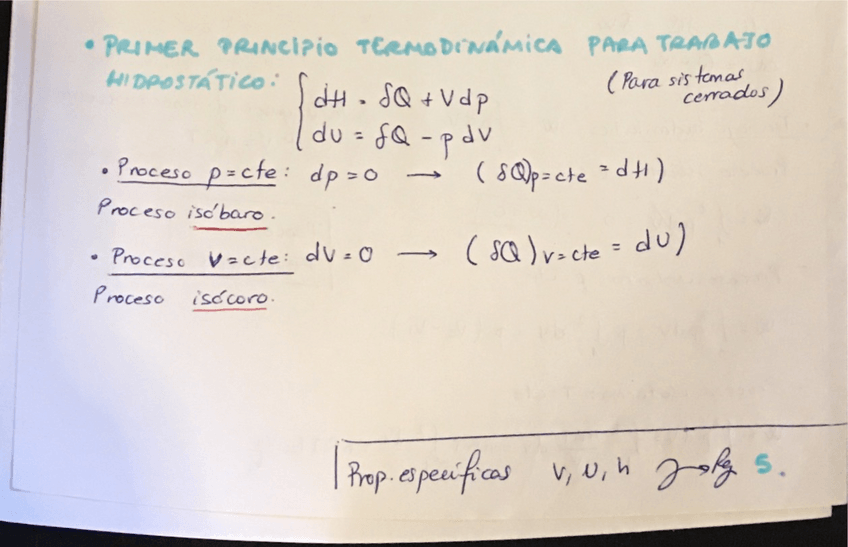 • PRIMER PRINCIPIO TERMODINÁMICA PARA TRABAJO
HIDROSTÁTICO: (Para sistemas cerrados)
dH = δQ + Vdp
dU = δQ - p dV
• Proceso p=cte: dp=0 → (δQ)p=cte = dH)
Proceso isóbaro.
• Proceso V=cte: dV=0 → (δQ)v=cte = dU)
Proceso isócoro.
Prop. específicas v, u, h → Pg 5.